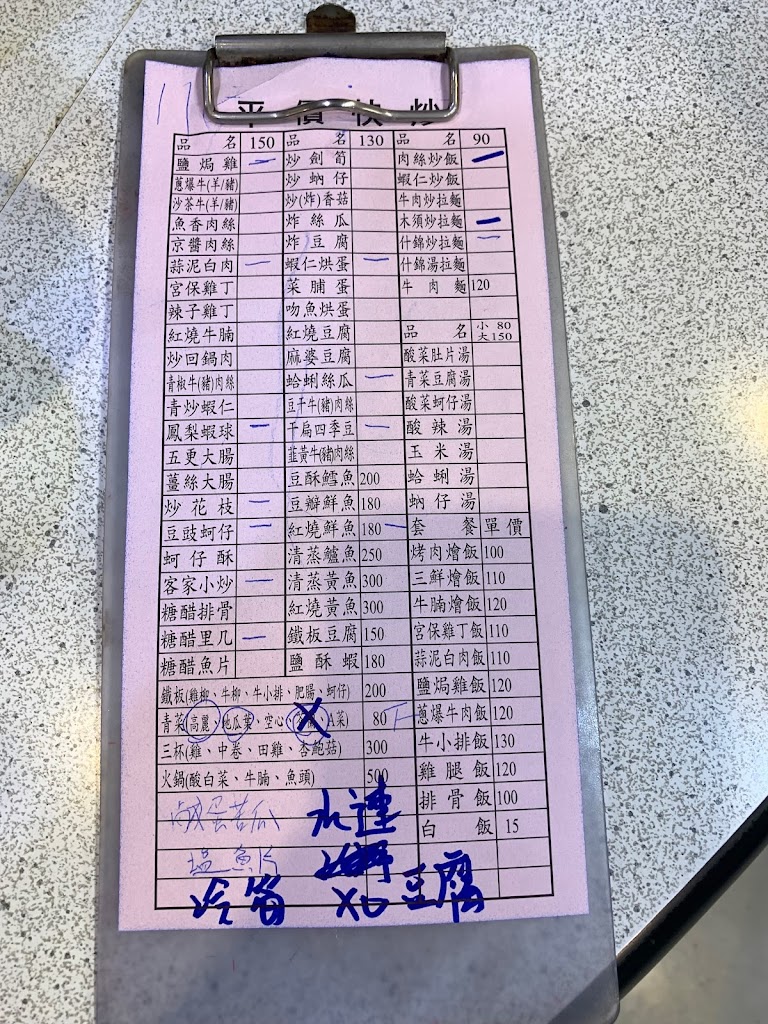 平價快炒
品名 150 品名 130 品名 90
鹽焗雞 炒劍筍 肉絲炒飯
蔥爆牛(羊/豬) 炒蚋仔 蝦仁炒飯
沙茶牛(羊/豬) 炒(炸)香菇 牛肉炒拉麵
魚香肉絲 炸絲瓜 木須炒拉麵
京醬肉絲 炸豆腐 什錦炒拉麵
蒜泥白肉 蝦仁烘蛋 什錦湯拉麵
宮保雞丁 菜脯蛋 牛肉麵 120
辣子雞丁 吻魚烘蛋
紅燒牛腩 紅燒豆腐 品名 小 80 大 150
炒回鍋肉 麻婆豆腐 酸菜肚片湯
青椒牛(豬)肉絲 蛤蜊絲瓜 青菜豆腐湯
青炒蝦仁 豆干牛(豬)肉絲 酸菜蚵仔湯
鳳梨蝦球 干扁四季豆 酸辣湯
五更大腸 韮黃牛(豬)肉絲 玉米湯
薑絲大腸 豆酥鱈魚 200 蛤蜊湯
炒花枝 豆瓣鮮魚 180 蚋仔湯
豆豉蚵仔 紅燒鮮魚 180 套餐 單價
蚵仔酥 清蒸鱸魚 250 烤肉燴飯 100
客家小炒 清蒸黃魚 300 三鮮燴飯 110
糖醋排骨 紅燒黃魚 300 牛腩燴飯 120
糖醋里几 鐵板豆腐 150 宮保雞丁飯 110
糖醋魚片 鹽酥蝦 180 蒜泥白肉飯 110
鐵板(雞柳、牛柳、牛小排、肥腸、蚵仔) 200 鹽焗雞飯 120
青菜(高麗、地瓜葉、空心、A菜) 80 蔥爆牛肉飯 120
三杯(雞、中卷、田雞、杏鮑菇) 300 牛小排飯 130
火鍋(酸白菜、牛腩、魚頭) 500 雞腿飯 120
排骨飯 100
鹹蛋苦瓜 水蓮 白飯 15
塩魚片
冷筍 XO豆腐